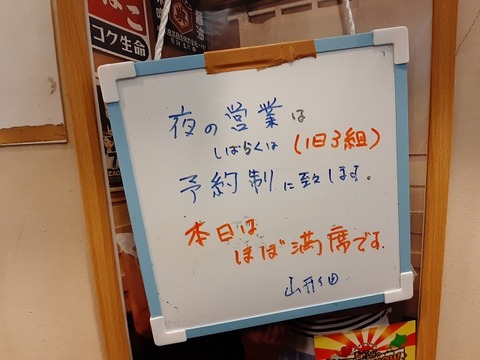 コク生命
夜の営業は
しばらくは(1日3組)
予約制に致します。
本日は
ほぼ満席です.